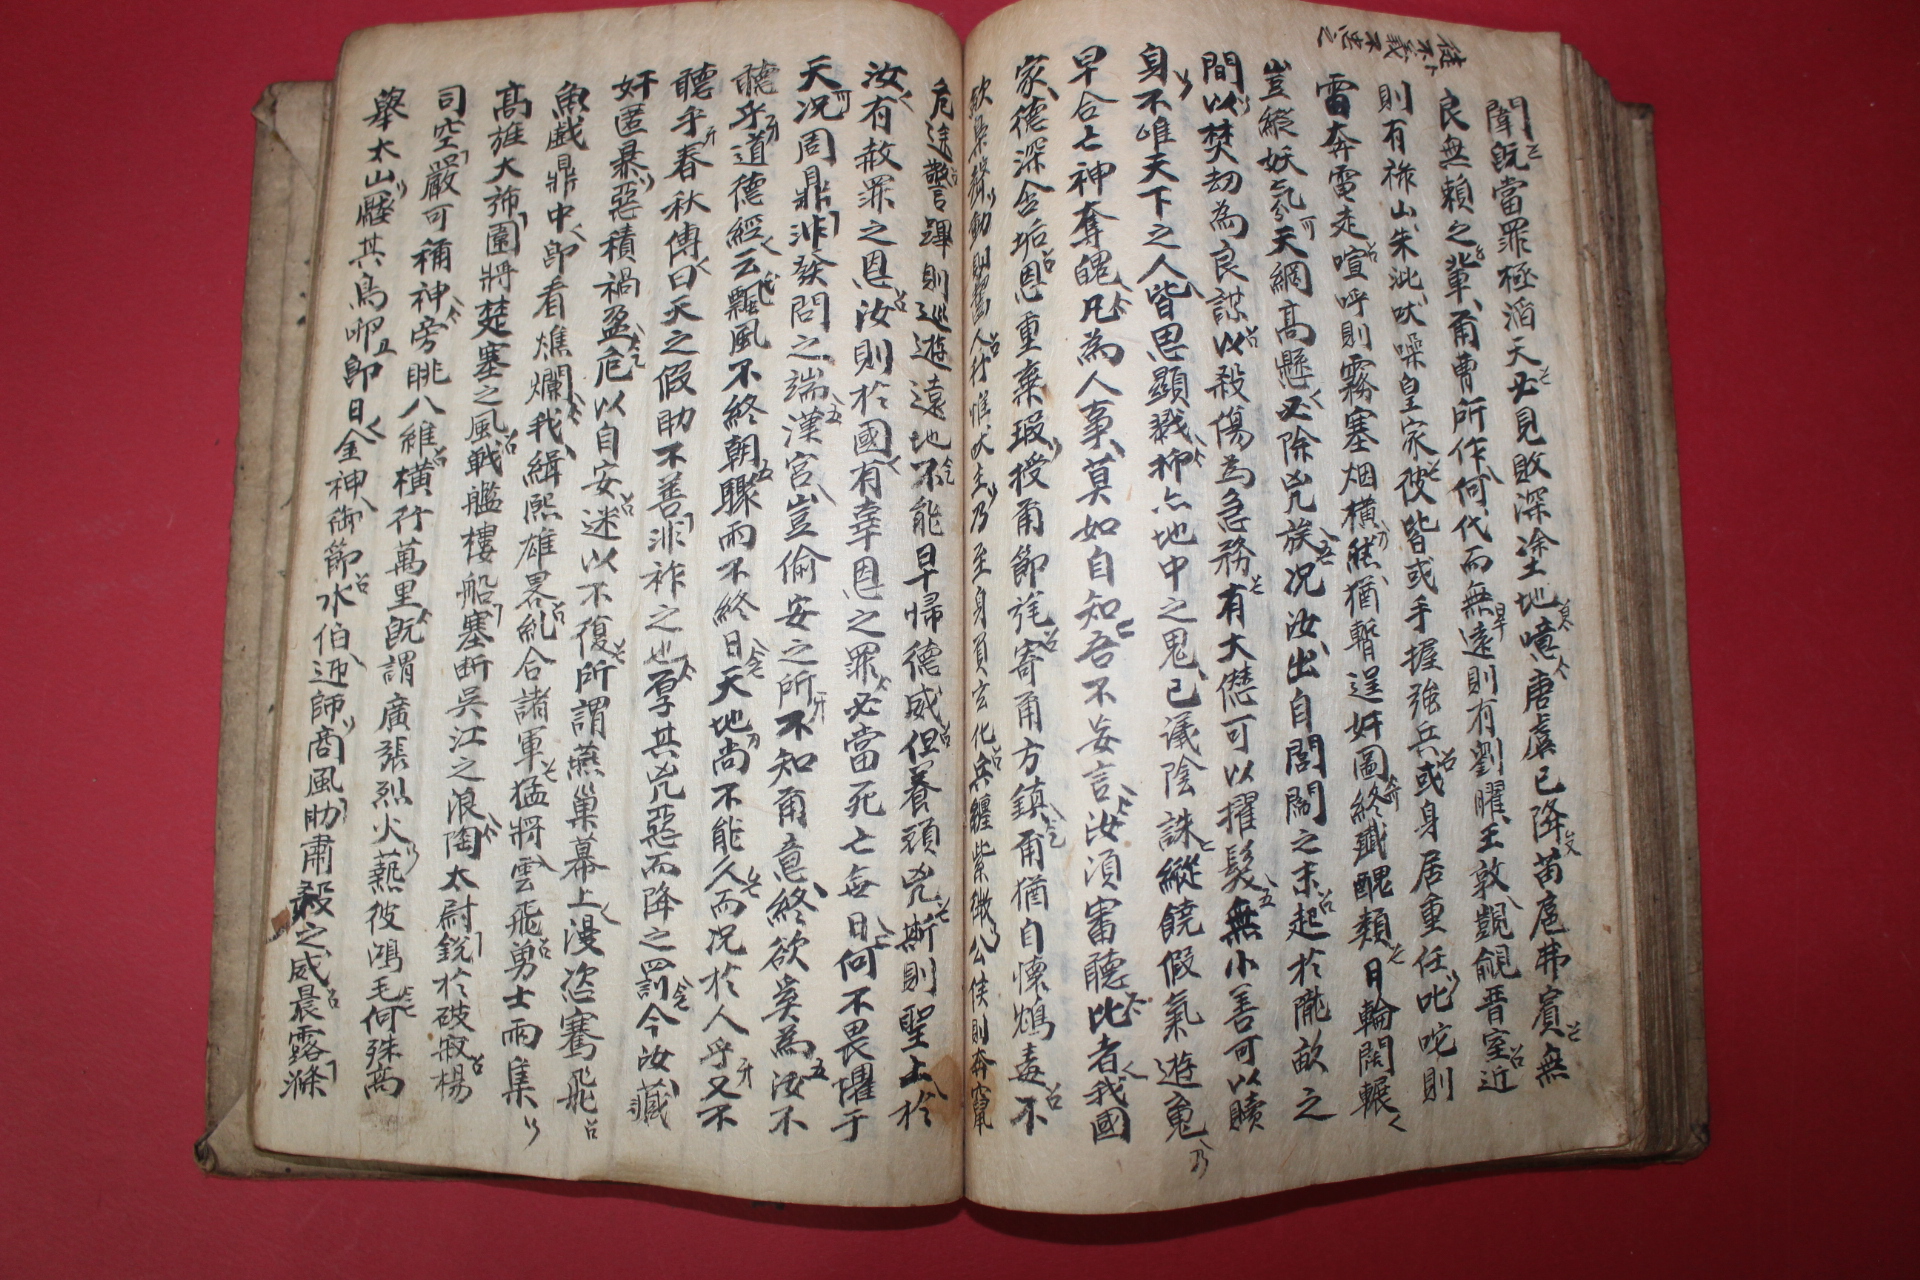 徒不義不忠之
閘旣當罪極滔天必見敗深塗地噫唐虞已降苗扈弗賓無
良無賴之輩爾曹所作何代而無遠則有劉曜王敦覬覦晋室近
則有祿山朱泚吠噪皇家彼皆或手握強兵或身居重任叱咜則
雷奔電走喧呼則霧塞烟橫然猶暫逞奸圖終殲醜類日輪闊輾
豈縱妖氛天綱高懸必除兇族况汝出自閭閻之末起於隴畝之
間以焚刼為良謀以殺傷為急務有大愆可以擢髮無小善可以贖
身不唯天下之人皆思顯戮抑亦地中之鬼已議陰誅縱饒假氣遊䰟
早合亡神奪魄凡為人事莫如自知吾不妄言汝須審聽比者我國
家德深含垢恩重棄瑕授爾節旄寄爾方鎮爾猶自懷鴆毒不
歛梟聲動則齧人行惟吠主乃至身負玄化兵纏紫微公侯則奔竄
危途警蹕則巡遊遠地不能早歸德威但養頑兇斯則聖上於
汝有赦罪之恩汝則於國有辜恩之罪必當死亡無日何不畏懼于
天况周鼎非發問之端漢宮豈偷安之所不知爾意終欲奚為汝不
聽乎道德經云飄風不終朝驟雨不終日天地尚不能久而况於人乎又不
聽乎春秋傳曰天之假助不善非祚之也厚其兇惡而降之罰今汝藏
奸匿暴惡積禍盈危以自安迷以不復所謂燕巢幕上漫恣騫飛
魚戲鼎中卽看燋爛我緝熙雄畧糺合諸軍猛將雲飛勇士雨集
高旌大斾圍將楚塞之風戰艦樓船塞斷吳江之浪陶太尉銳於破敵楊
司空嚴可稱神旁眺八維橫行萬里旣謂廣張烈火爇彼鴻毛何殊高
擧太山壓其鳥卵卽日金神御節水伯迎師商風助肅殺之威晨露滌